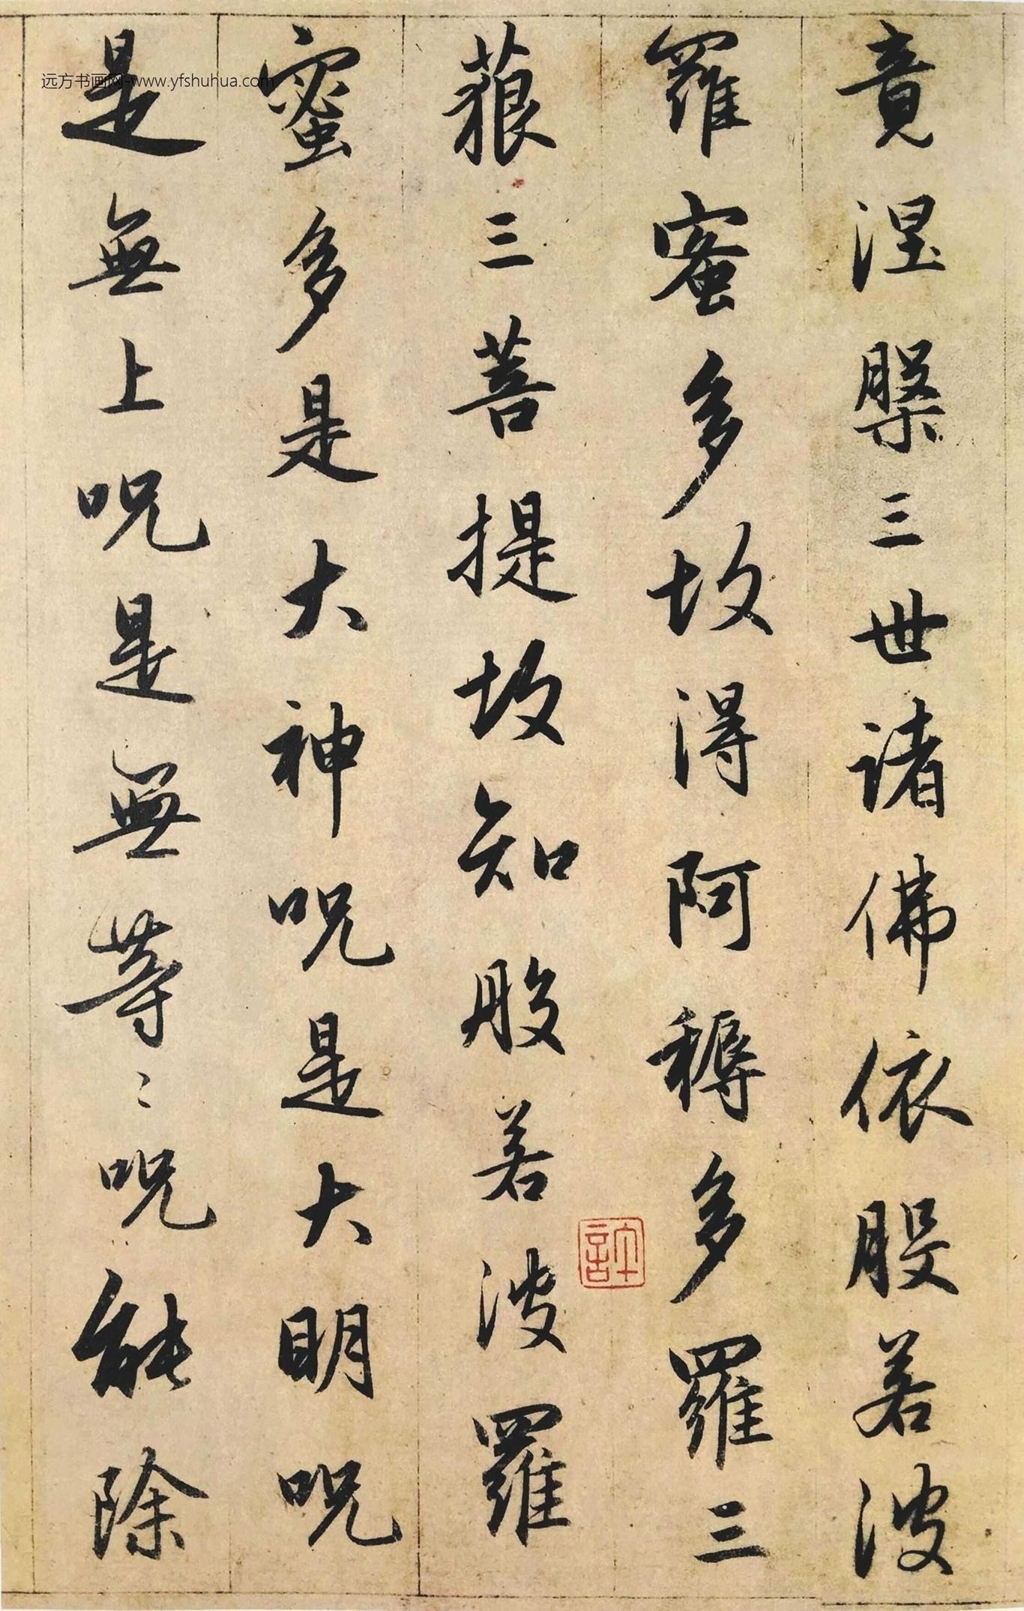 竟涅槃三世諸佛依般若波
羅蜜多故得阿耨多羅三
藐三菩提故知般若波羅
蜜多是大神呪是大明呪
是無上呪是無等〻呪能除
远方书画网-www.yfshuhua.com